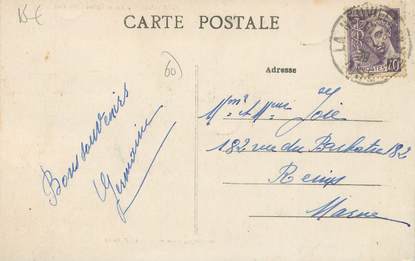 15€
CARTE POSTALE
60
Adresse
Bons souvenirs
Germaine
Mme & Mr Joie
182 rue du Barbatre 182
Reims
Marne
LA NEUVI
POSTES 40